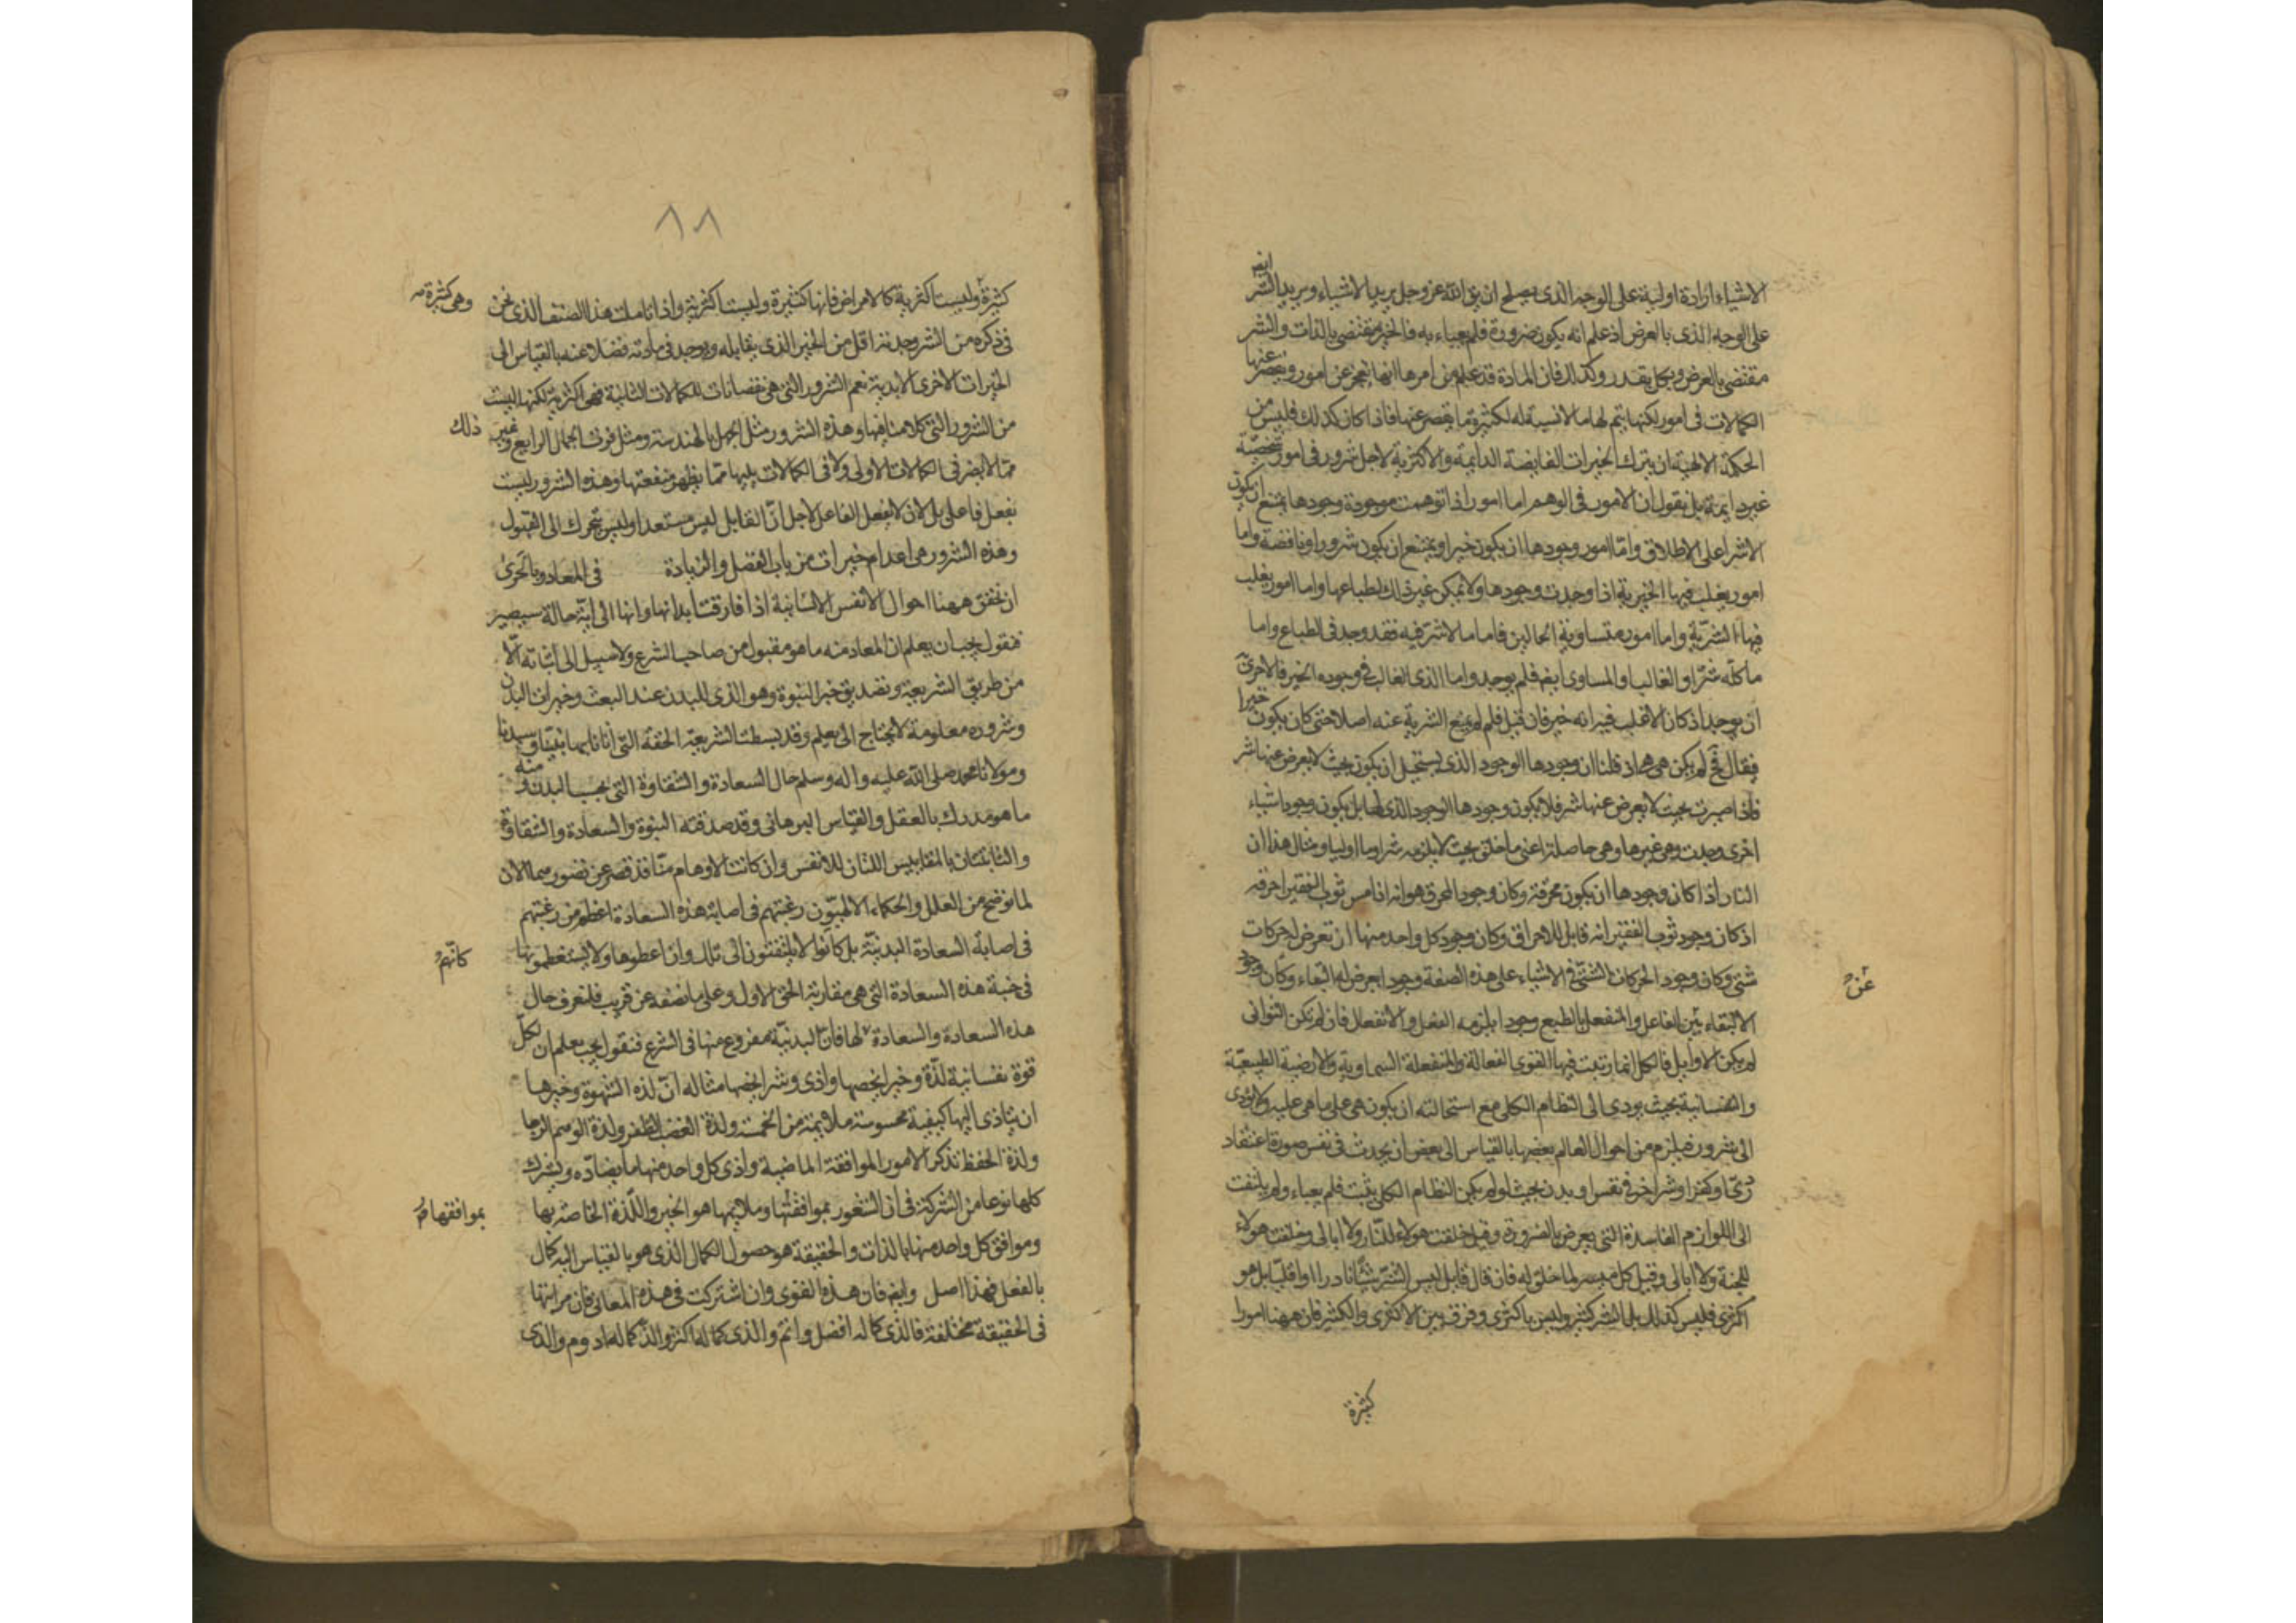 الاشياء ارادة اولية على الوجه الذى يصلح ان يق الله عز وجل يريد الاشياء ويريد الشر ايضه
على الوجه الذى بالعرض اذ علم انه يكون ضرورة فلم يعباء به فالخير مقتضى بالذات والشر
مقتضى بالعرض وبكل يقدر وكذالك فان المادة قد علم من امرها انها تعجز عن امور ويقصر عنها
الكمالات فى امور لكنها يتم لها ما لا نسبة له لكثرة ما يقصر عنها فاذا كان كذلك فليس من
الحكمة الالهية ان يترك الخيرات الفايضة الدايمة والاكثرية لاجل شرور فى امور شخصية
غير دايمة بل نقول ان الامور فى الوهم اما امور اذا توهمت موجودة وجودها يمتنع ان يكون
الا شرا على الاطلاق واما امور وجودها ان يكون خيرا ويمتنع ان يكون شرورا وناقصة واما
امور يغلب فيها الخيرية اذا وجدت وجودها ولا يمكن غير ذلك لطباعها واما امور يغلب
فيها الشرية واما امور متساوية الحالين فاما ما لا شر فيه فقد وجد فى الطباع واما
ما كله شر او الغالب او المساوى ايضه فلم يوجد واما الذى الغالب فى وجوده الخير فالاحرى
ان يوجد اذ كان الاغلب فيه انه خير فان قيل فلم لم يمنع الشرية عنه اصلا حتى كان يكون خيرا
فيقال فح لم يكن هى هى اذ قلنا ان وجودها الوجود الذى يستحيل ان يكون بحيث لا يعرض عنها شر
فاذا صيرت بحيث لا يعرض عنها شر فلا يكون وجودها الوجود الذى لها بل يكون وجود اشياء
اخرى وجدت وهى غيرها وهى حاصلة اعنى ما خلق بحيث لا يلزمه شر لزوما اوليا ومثال هذا ان
النار اذا كان وجودها ان يكون محرقة وكان وجود المحرق هو انه اذا مس ثوب الفقير احرقه
اذ كان وجود ثوب الفقير انه قابل للاحراق وكان وجود كل واحد منها ان تعرض له حركات
شتى وكان وجود الحركات الشتى فى الاشياء على هذه الصفة وجود ما يعرض له التقاء وكان وجود
عن
الالتقاء بين الفاعل والمنفعل بالطبع وجودا يلزمه الفعل والانفعال فان لم تكن الثوانى
لم يكن الاوايل فالكل انما رتبت فيها القوى الفعالة والمنفعلة السماوية والارضية الطبيعية
والنفسانية بحيث يودى الى النظام الكلى مع استحالته ان يكون هى على ما هى عليه ولا يودى
الى شرور فيلزم من احوال العالم بعضها بالقياس الى بعض ان يحدث فى نفس صورة اعتقاد
ردى او كفر او شر اخر فى نفس او بدن بحيث لو لم يكن النظام الكلى يثبت فلم يعباء ولم يلتفت
الى اللوازم الفاسدة التى يعرض بالضرورة وقيل خلقت هولاء للنار ولا ابالى وخلقت هولاء
للجنة ولا ابالى وقيل كل ميسر لما خلق له فان قال قايل ليس الشر شيئا نادرا او اقليا بل هو
اكثرى فليس كذلك بل الشر كثير وليس باكثرى وفرق بين الاكثرى والكثير فان ههنا امورا
كثيرة
٨٨
كثيرة وليست اكثرية كالامراض فانها كثيرة وليست اكثرية واذا تاملت هذا الصنف الذى نحن
وهى كثيرة صه
فى ذكره من الشر وجدته اقل من الخير الذى يقابله ويوجد فى مادته فضلا عنه بالقياس الى
الخيرات الاخرى الابدية نعم الشرور التى هى نقصانات للكمالات الثانية فهى اكثرية لكنها ليست
من الشرور التى كلامنا فيها وهذه الشرور مثل الجهل بالهندسة ومثل فوت الجمال الرايع وغير ذلك
مما لا يضر فى الكمالات الاولى ولا فى الكمالات يليها مما يظهر منفعتها وهذه الشرور ليست
بفعل فاعل بل لان لا يفعل الفاعل لاجل ان القابل ليس مستعدا وليس يتحرك الى القبول
وهذه الشرور هى اعدام خيرات من باب الفضل والزيادة فى المعاد وبالحرى
ان نحقق ههنا احوال الانفس الانسانية اذا فارقت ابدانها وانها الى اية حالة سيصير
فنقول يجب ان يعلم ان المعاد منه ما هو مقبول من صاحب الشرع ولا سبيل الى اثباته الا
من طريق الشريعة وتصديق خبر النبوة وهو الذى للبدن عند البعث وخيرات البدن
وشروره معلومة لا يحتاج الى يعلم وقد بسطت الشريعة الحقة التى اتانا بها نبينا وسيدنا
ومولانا محمد صلى الله عليه واله وسلم حال السعادة والشقاوة التى بحسب البدن ومنه
ما هو مدرك بالعقل والقياس البرهانى وقد صدقته النبوة والسعادة والشقاوة
والثابتتان بالمقاييس اللتان للانفس وان كانت الاوهام منا قد قصر عن تصورهما الان
لما نوضح من العلل والحكماء الالهيون رغبتهم فى اصابة هذه السعادة اعظم من رغبتهم
فى اصابة السعادة البدنية بل كانوا لا يلتفتون الى تلك وان اعطوها ولا يستعظمونها
كانهم
فى جنبة هذه السعادة التى هى مقاربة الحق الاول وعلى ما نصفه عن قريب فلنعرف حال
هذه السعادة والسعادة لها فان البدنية مفروغ منها فى الشرع فنقول يجب يعلم ان لكل
قوة نفسانية لذة وخيرا يخصها واذى وشرا يخصها مثاله ان لذة الشهوة وخيرها
ان يتادى اليها كيفية محسوسة ملايمة من الخمسة ولذة الغضب الظفر ولذة الوهم الرجا
ولذة الحفظ تذكر الامور الموافقة الماضية واذى كل واحد منها ما يضاده ويشترك
كلها نوعا من الشركة فى ان الشعور بموافقتها وملايمها هو الخير واللذة الخاصة بها
بموافقها
وموافق كل واحد منها بالذات والحقيقة هو حصول الكمال الذى هو بالقياس اليه كمال
بالفعل فهذا اصل وايضه فان هذه القوى وان اشتركت فى هذه المعانى فان مراتبها
فى الحقيقة مختلفة فالذى كماله افضل واتم والذى كماله اكثر والذى كماله ادوم والذى